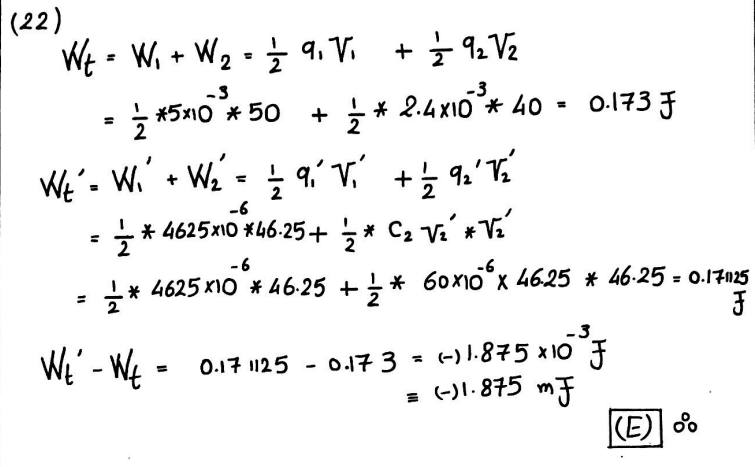 (22)
Wt = W1 + W2 = 1/2 q1 V1 + 1/2 q2 V2
= 1/2 *5x10^-3 * 50 + 1/2 * 2.4x10^-3 * 40 = 0.173 J
Wt' = W1' + W2' = 1/2 q1' V1' + 1/2 q2' V2'
= 1/2 * 4625x10^-6 *46.25 + 1/2 * C2 V2' * V2'
= 1/2 * 4625x10^-6 * 46.25 + 1/2 * 60x10^-6 x 46.25 * 46.25 = 0.171125
J
Wt' - Wt = 0.171125 - 0.173 = (-)1.875 x10^-3 J
≡ (-)1.875 mJ
(E)